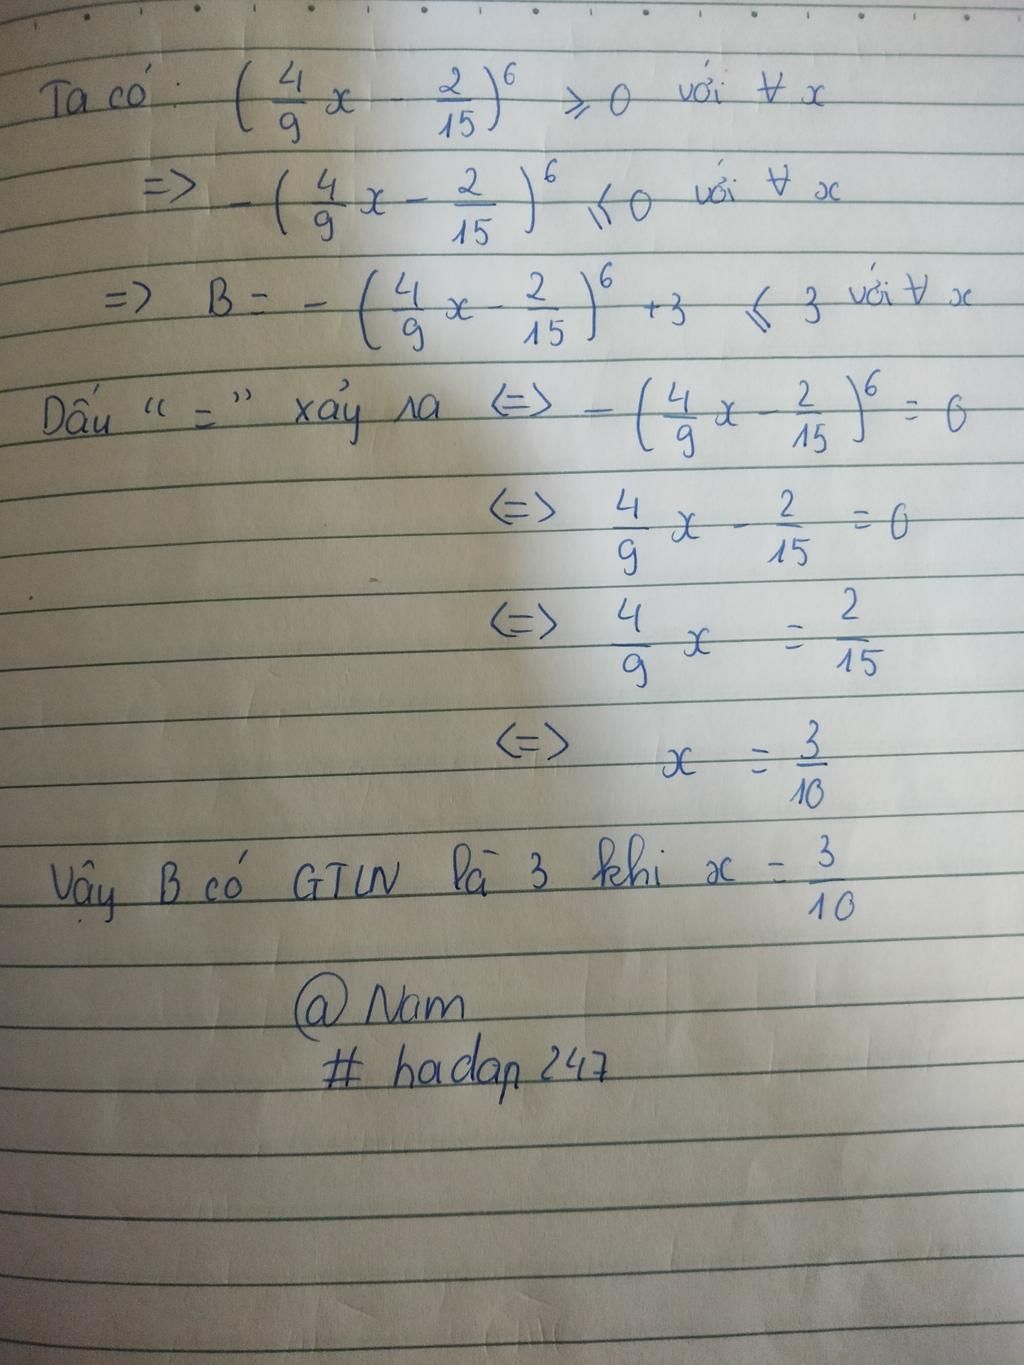 Ta có : (4/9 x - 2/15)^6 ⩾ 0 với ∀ x
=> - (4/9 x - 2/15)^6 ⩽ 0 với ∀ x
=> B = - (4/9 x - 2/15)^6 + 3 ⩽ 3 với ∀ x
Dấu “ = ” xảy ra <=> - (4/9 x - 2/15)^6 = 0
<=> 4/9 x - 2/15 = 0
<=> 4/9 x = 2/15
<=> x = 3/10
Vậy B có GTLN là 3 khi x = 3/10
@ Nam
# hadap 247